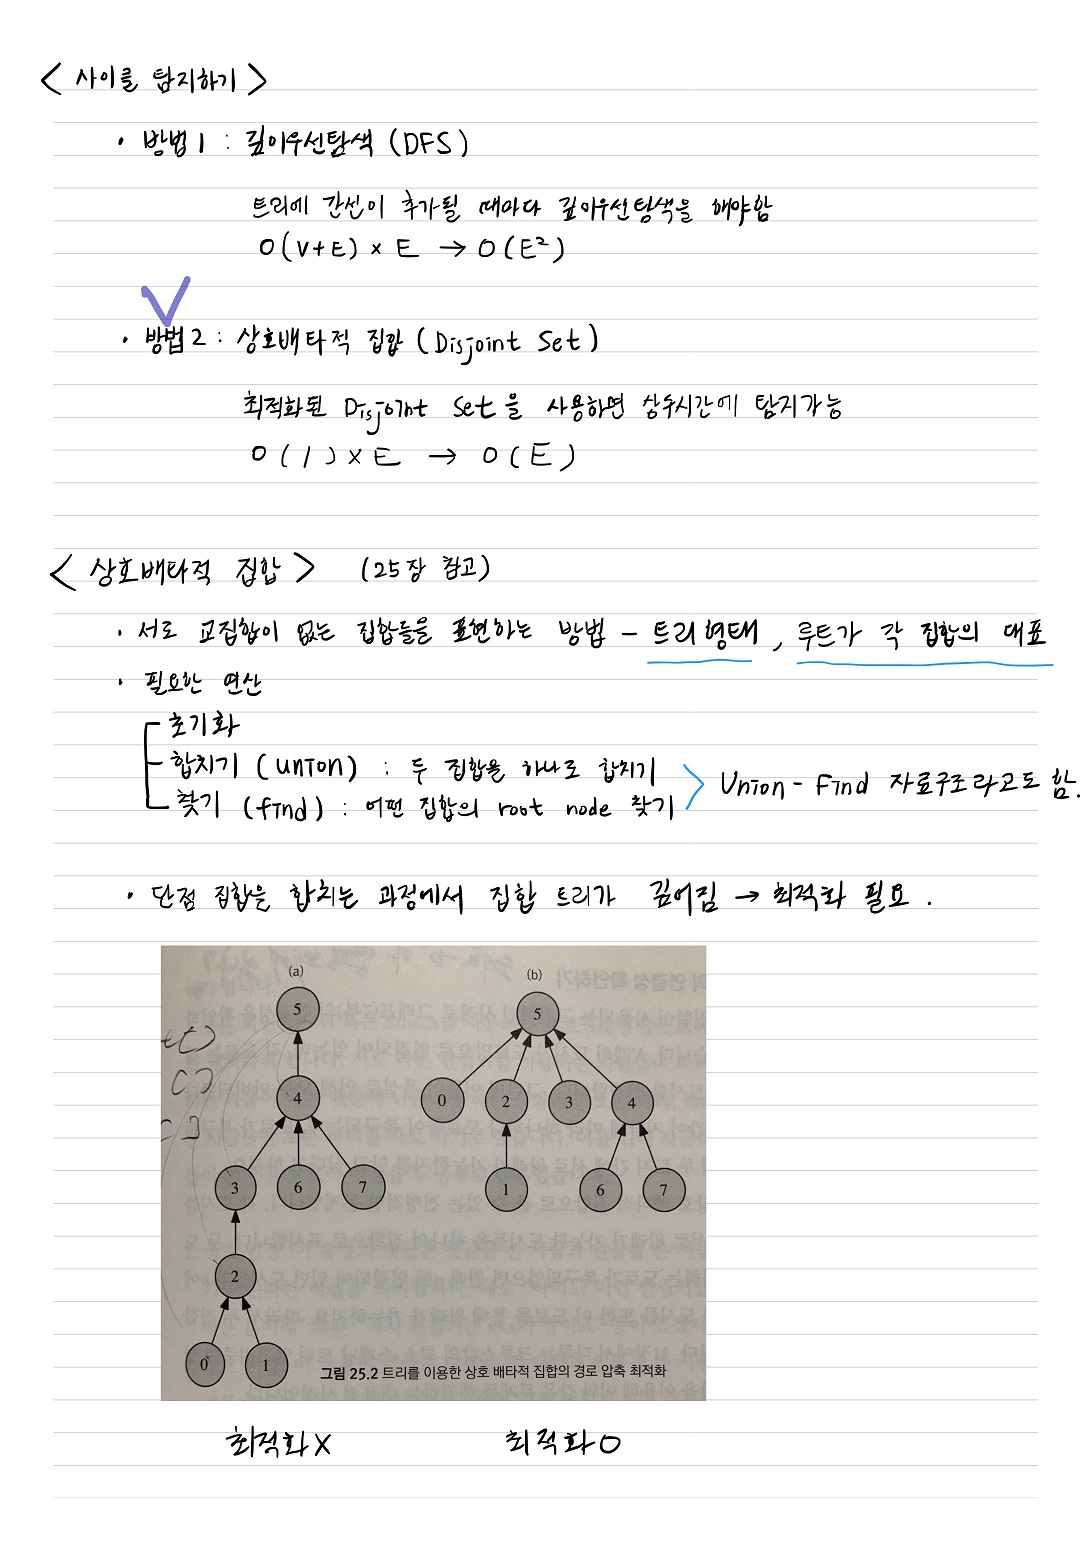 < 사이클 탐지하기 >
• 방법1 : 깊이우선탐색 (DFS)
트리에 간선이 추가될 때마다 깊이우선탐색을 해야함
O(V+E) × E → O(E²)
• 방법2 : 상호배타적 집합 (Disjoint Set)
최적화된 Disjoint Set을 사용하면 상수시간에 탐지가능
O(1) × E → O(E)
< 상호배타적 집합 > (25장 참고)
• 서로 교집합이 없는 집합들을 표현하는 방법 - 트리형태, 루트가 각 집합의 대표
• 필요한 연산
초기화
합치기 (union) : 두 집합을 하나로 합치기
찾기 (find) : 어떤 집합의 root node 찾기
Union - Find 자료구조라고도 함.
• 단점 집합을 합치는 과정에서 집합 트리가 깊어짐 → 최적화 필요.
(a) (b)
5 5
4 0 2 3 4
3 6 7 1 6 7
2
0 1
그림 25.2 트리를 이용한 상호 배타적 집합의 경로 압축 최적화
최적화 X 최적화 O